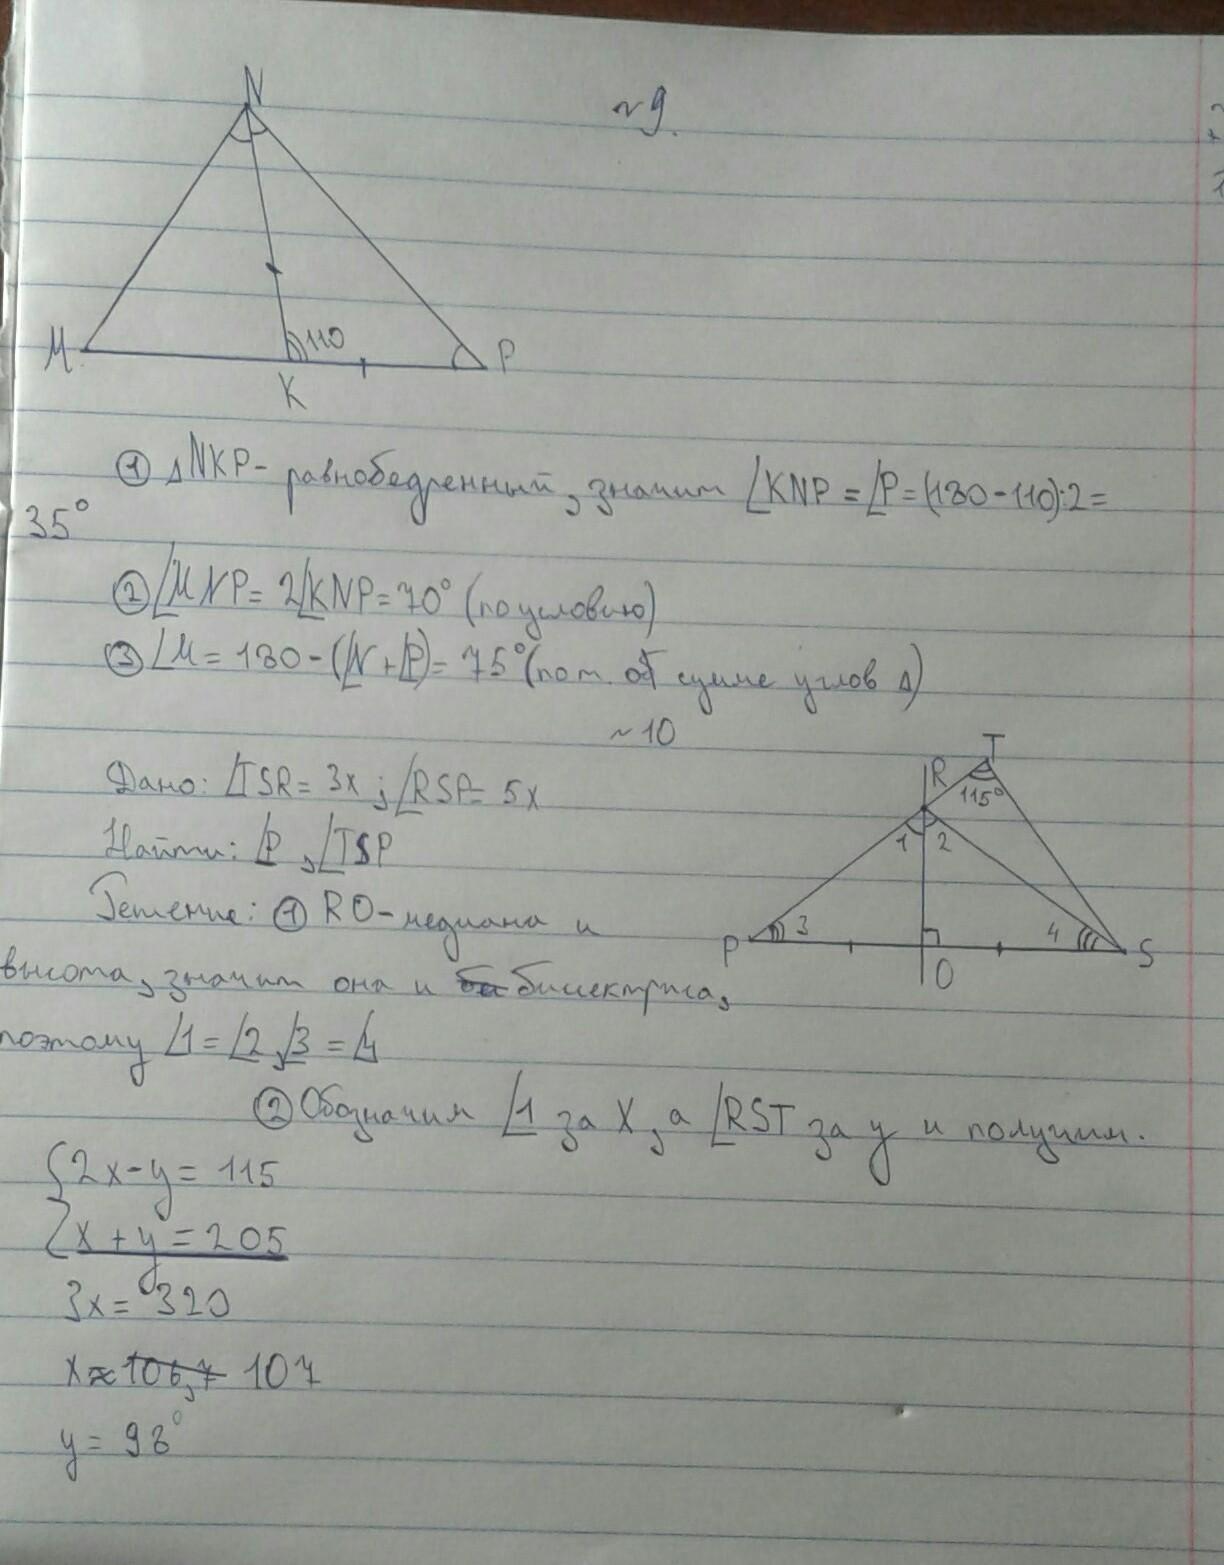 N
~ 9.
M
110
P
K
① △NKP - равнобедренный, значит ∠KNP = ∠P = (180 - 110):2 =
35°
② ∠MNP = 2∠KNP = 70° (по условию)
③ ∠M = 180 - (∠N + ∠P) = 75° (по т. об сумме углов △)
~ 10
T
R
115°
1 2
P 3 4 S
O
Дано: ∠TSR = 3x ; ∠RSP = 5x
Найти: ∠P , ∠TSP
Решение: ① RO - медиана и
высота, значит она и биссектриса,
поэтому ∠1 = ∠2, ∠3 = ∠4
② Обозначим ∠1 за X, а ∠RST за y и получим.
2x - y = 115
x + y = 205
3x = 320
x ≈ 106,7 107
y = 98°